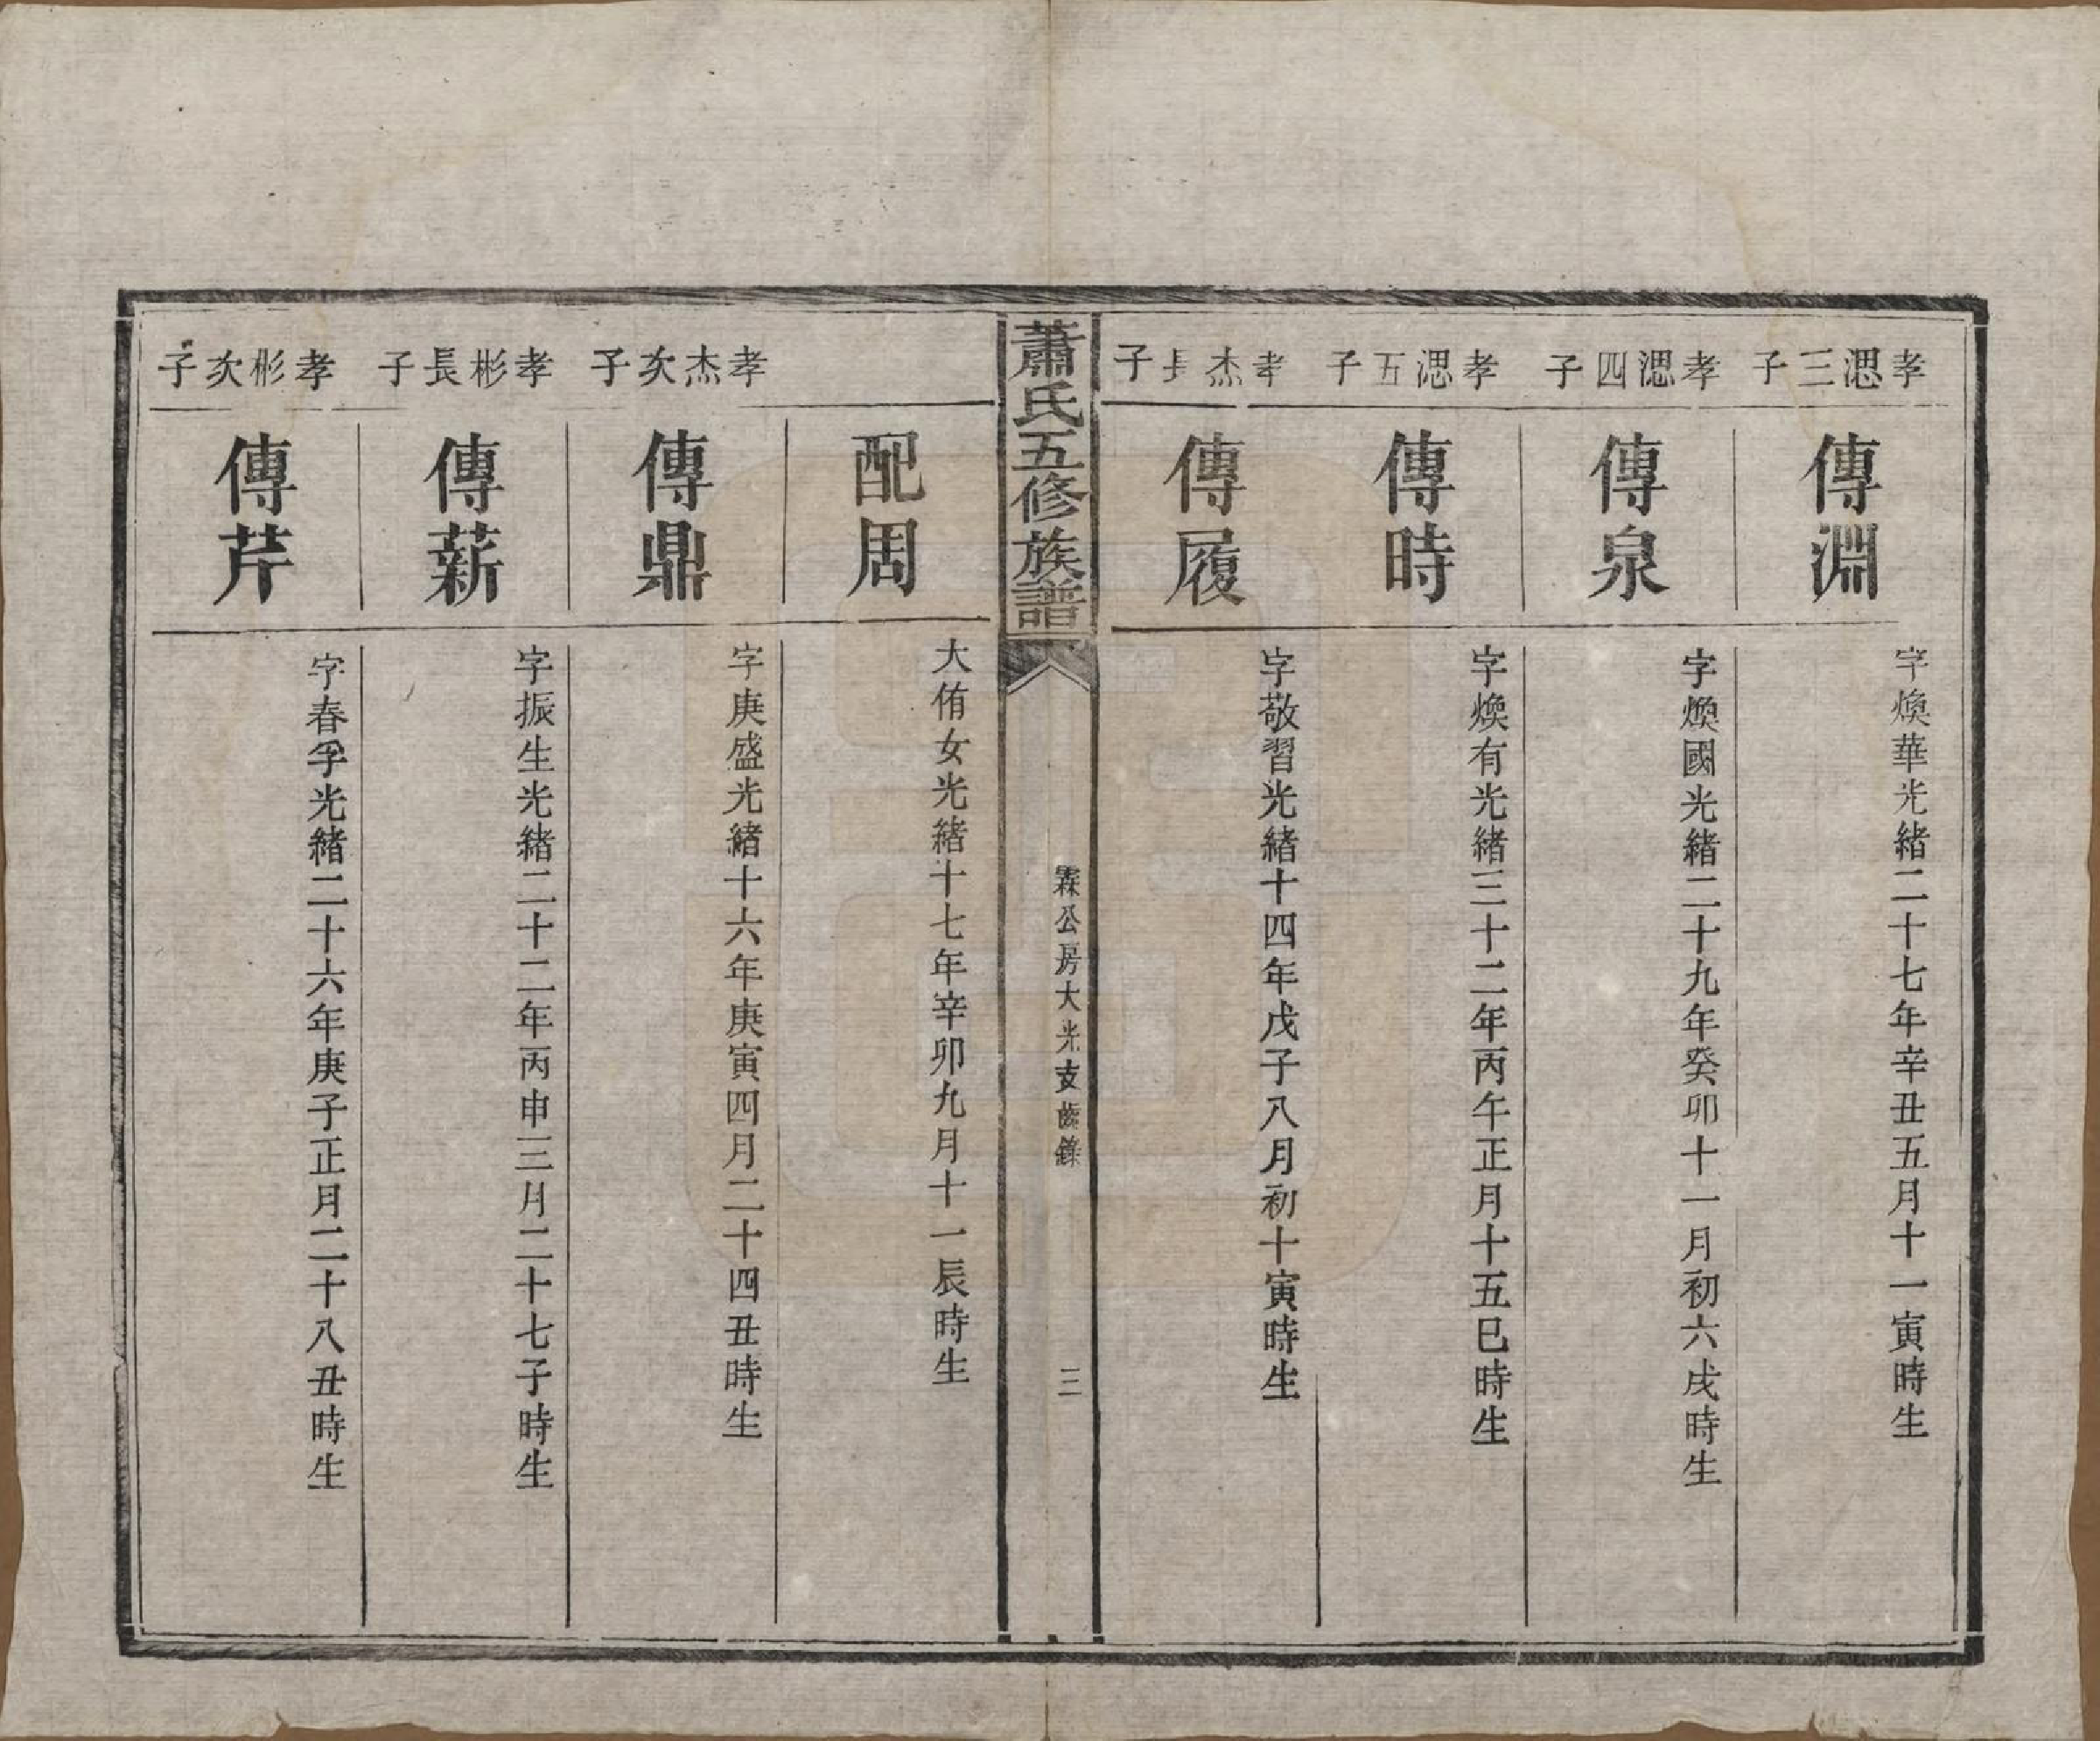 孝𤀹三子
傳淵
字煥華光緒二十七年辛丑五月十一寅時生
孝𤀹四子
傳泉
字煥國光緒二十九年癸卯十一月初六戌時生
孝𤀹五子
傳時
字煥有光緒三十二年丙午正月十五巳時生
孝杰長子
傳履
字敬習光緒十四年戊子八月初十寅時生
蕭氏五修族譜
霖公房大光支齒錄
三
配周
大侑女光緒十七年辛卯九月十一辰時生
孝杰次子
傳鼎
字庚盛光緒十六年庚寅四月二十四丑時生
孝彬長子
傳薪
字振生光緒二十二年丙申三月二十七子時生
孝彬次子
傳芹
字春孚光緒二十六年庚子正月二十八丑時生